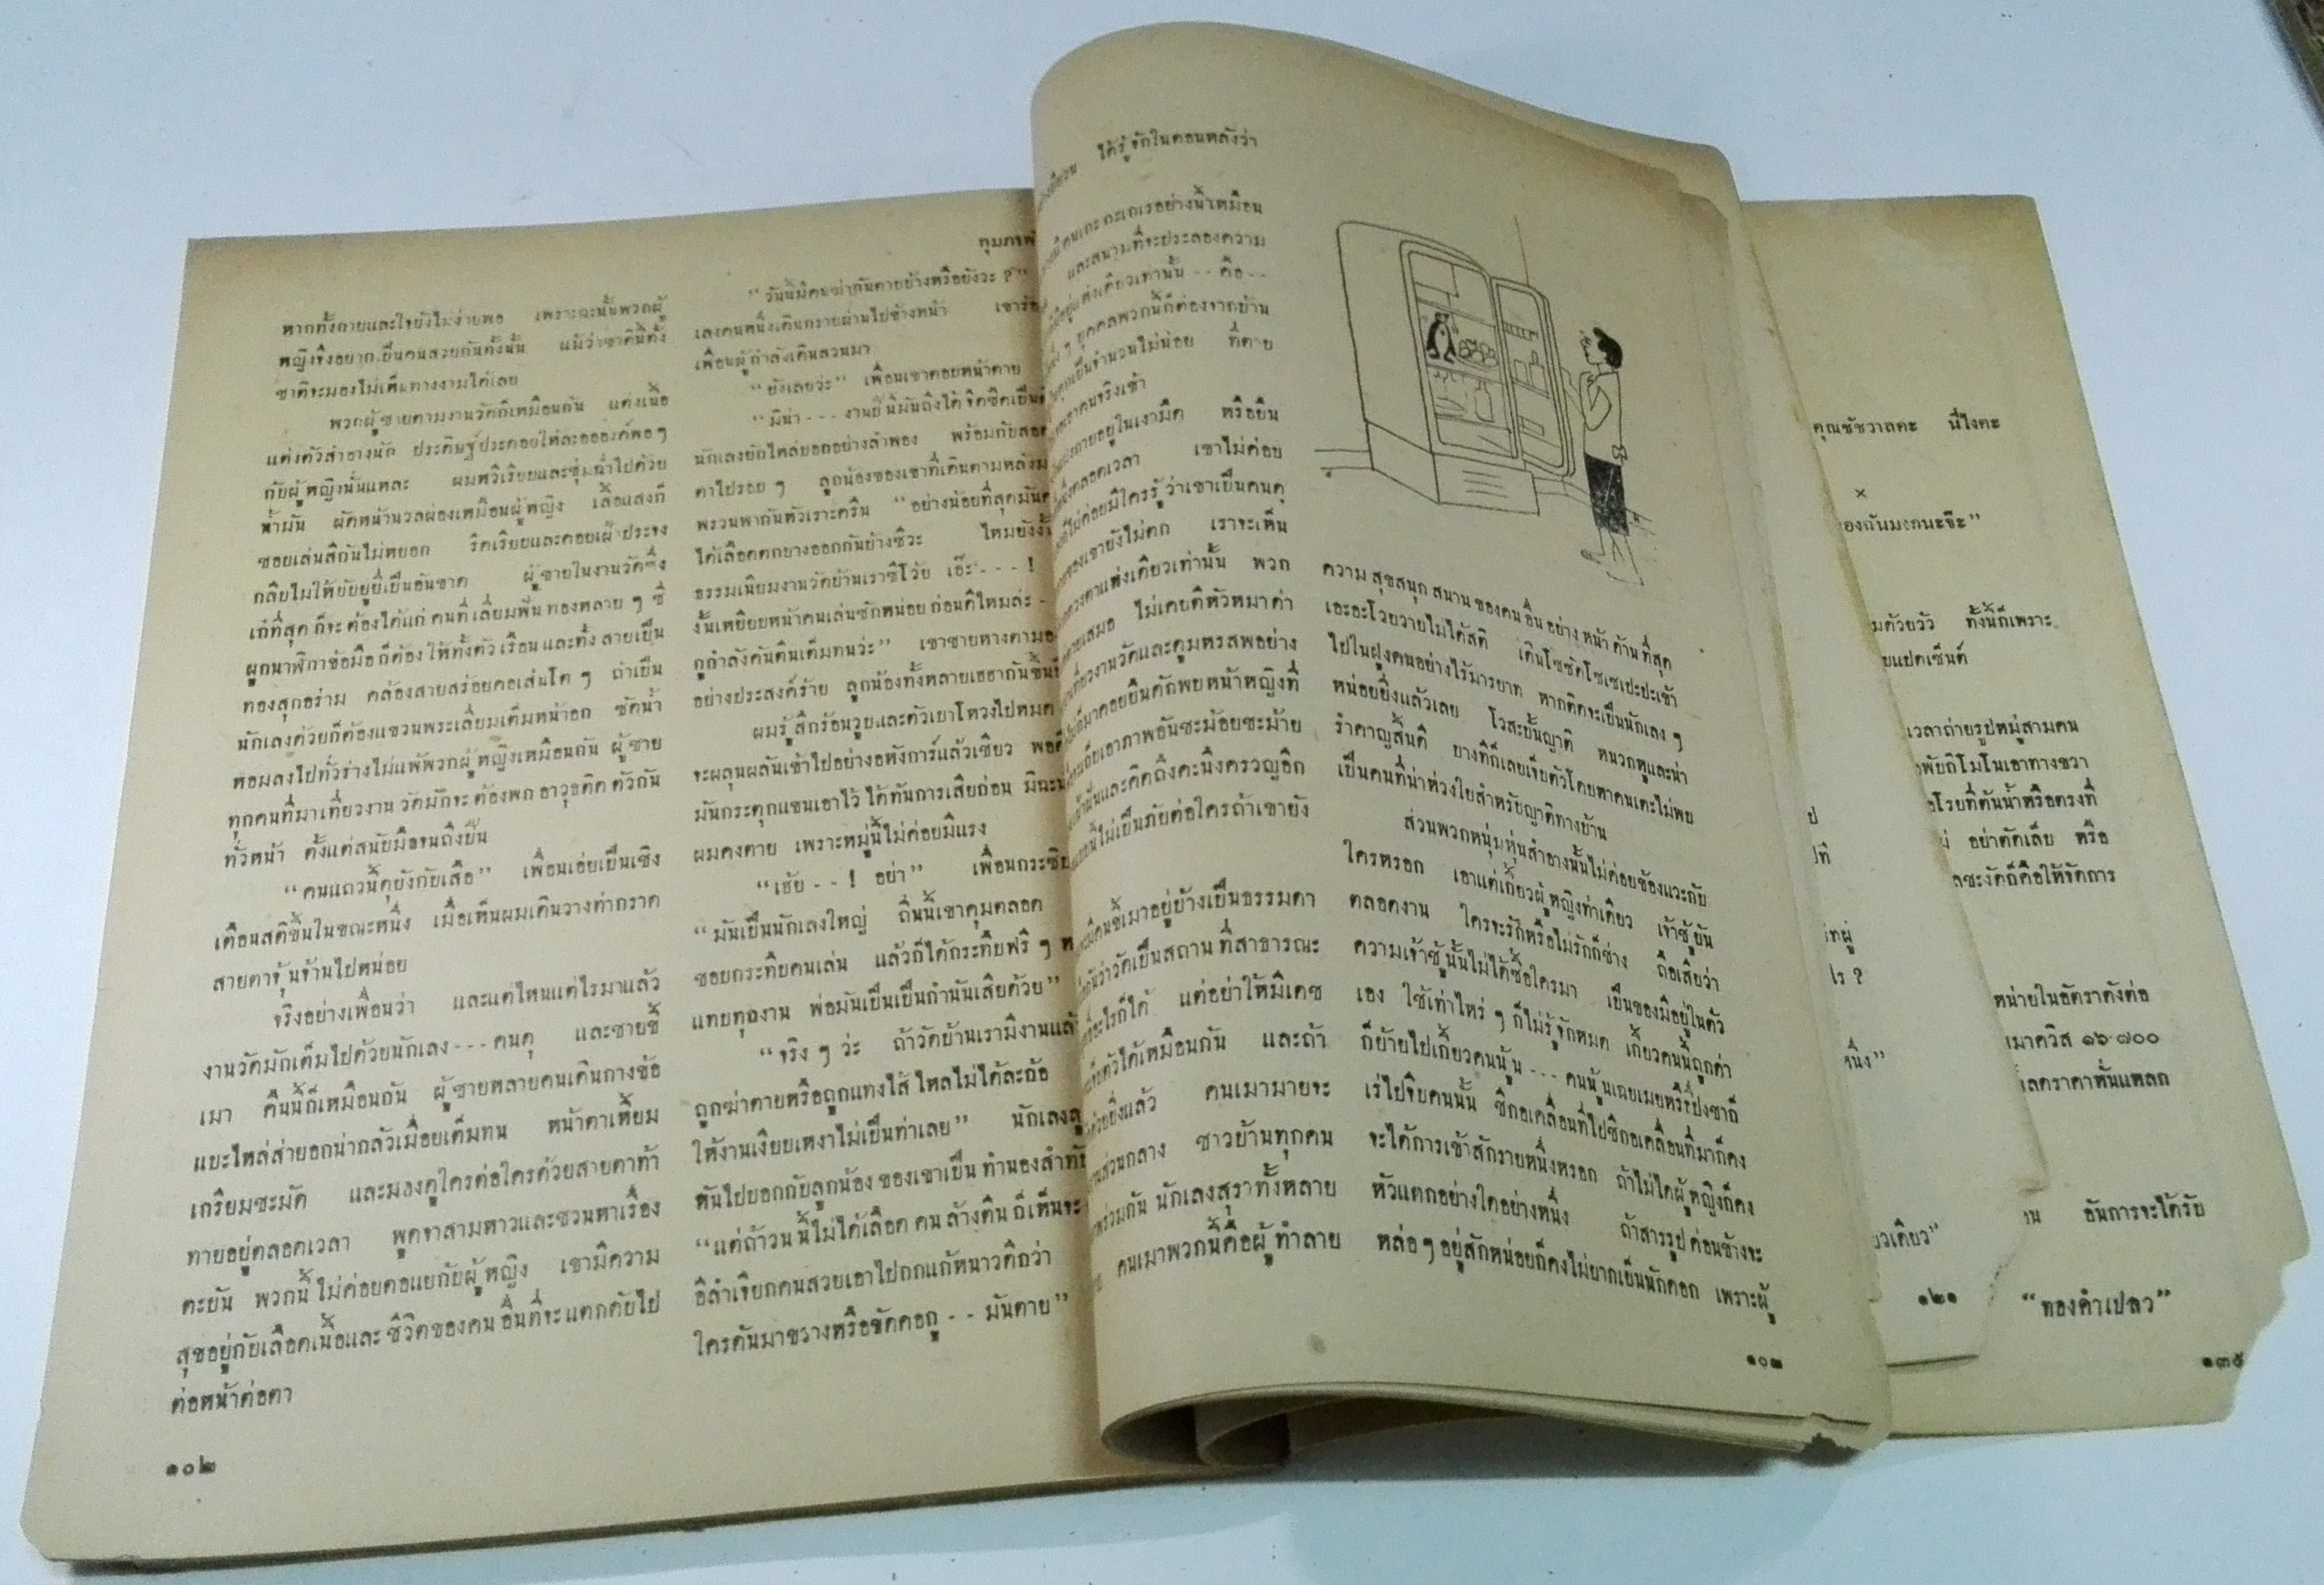 กุมภาพั
หากทั้งกายและใจยังไม่ง่ายพอ เพราะฉะนั้นพวกผู้
หญิงจึงอยากเป็นคนสวยกันทั้งนั้น แม้ว่าชาตินี้ทั้ง
ชาติจะมองไม่เห็นทางงามได้เลย
พวกผู้ชายตามงานวัดก็เหมือนกัน แต่งเนื้อ
แต่งตัวสำอางนัก ประดิษฐ์ประดอยให้ละอออง์พอๆ
กับผู้หญิงนั่นแหละ ผมหวีเรียบและชุ่มฉ่ำไปด้วย
น้ำมัน ผัดหน้านวลผ่องเหมือนผู้หญิง เสื้อแสงก็
ชอบเล่นสีกันไม่หยอก รีดเรียบและคอยเฝ้าประจง
กลีบไม่ให้ยับยู่ยี่เป็นอันขาด ผู้ชายในงานวัดซึ่ง
เก๋ที่สุด ก็จะต้องได้แก่ คนที่เลี่ยมฟันทองหลาย ๆ ซี่
ผูกนาฬิกาข้อมือก็ต้องให้ทั้งตัวเรือนและทั้งสายเป็น
ทองสุกอร่าม คล้องสายสร้อยคอเส้นโต ๆ ถ้าเป็น
นักเลงด้วยก็ต้องแขวนพระเลี่ยมเต็มหน้าอก ซัดน้ำ
หอมลงไปทั่วร่างไม่แพ้พวกผู้หญิงเหมือนกัน ผู้ชาย
ทุกคนที่มาเที่ยวงานวัดมักจะต้องพกอาวุธติดตัวกัน
ทั่วหน้า ตั้งแต่สนับมือจนถึงปืน
“คนแถวนี้ดุยังกับเสือ” เพื่อนเอ่ยเป็นเชิง
เตือนสติขึ้นในขณะหนึ่ง เมื่อเห็นผมเดินวางท่ากราด
สายตาจุ้นจ้านไปหน่อย
จริงอย่างเพื่อนว่า และแต่ไหนแต่ไรมาแล้ว
งานวัดมักเต็มไปด้วยนักเลง---คนดุ และชายขี้
เมา คืนนี้ก็เหมือนกัน ผู้ชายหลายคนเดินกางข้อ
แบะไหล่ส่ายอกน่ากลัวเมื่อยเต็มทน หน้าตาเหี้ยม
เกรียมชะมัด และมองดูใครต่อใครด้วยสายตาท้า
ทายอยู่ตลอดเวลา พูดจาสามหาวและชวนหาเรื่อง
ตะบัน พวกนี้ไม่ค่อยตอแยกับผู้หญิง เขามีความ
สุขอยู่กับเลือดเนื้อและชีวิตของคนอื่นที่จะแตกดับไป
ต่อหน้าต่อตา
๑๐๒
“วันนี้มีคนฆ่ากันตายบ้างหรือยังวะ ?”
เลงคนหนึ่งเดินกรายผ่านไปข้างหน้า เขาร้อ
เพื่อนผู้กำลังเดินสวนมา
“ยังเลยว่ะ” เพื่อนเขาตอบหน้าตาย
“มิน่า---งานปีนี้มันถึงได้จืดชืดเป็น
นักเลงยักไหล่บอกอย่างลำพอง พร้อมกับสอด
ตาไปรอบ ๆ ลูกน้องของเขาที่เดินตามหลังม
พรวนพากันหัวเราะครืน “อย่างน้อยที่สุดมันต
ได้เลือดตกยางออกกันบ้างซีวะ ไหมยังงั้
ธรรมเนียมงานวัดบ้านเราซีโว้ย เอ๊ะ---!
งั้นเหยียบหน้าคนเล่นซักหน่อยก่อนดีไหมล่ะ -
กูกำลังคันตีนเต็มทนว่ะ” เขาชายหางตามอ
อย่างประสงค์ร้าย ลูกน้องทั้งหลายเฮฮากันขึ้นอี
ผมรู้สึกร้อนวูบและตัวเบาโหวงไปหมด
จะผลุนผลันเข้าไปอย่างอหังการ์แล้วเชียว พอดี
มันกระตุกแขนเอาไว้ได้ทันการเสียก่อน มิฉะนั้
ผมคงตาย เพราะหมู่นี้ไม่ค่อยมีแรง
“เฮ้ย--! อย่า” เพื่อนกระซิบ
“มันเป็นนักเลงใหญ่ ถิ่นนี้เขาคุมตลอด
ชอบกระทืบคนเล่น แล้วก็ได้กระทืบฟรี ๆ ห
แทบทุกงาน พ่อมันเป็นเป็นกำนันเสียด้วย”
“จริง ๆ ว่ะ ถ้าวัดบ้านเรามีงานแล้
ถูกฆ่าตายหรือถูกแทงไส้ไหลไม่ได้ละก้อ
ให้งานเงียบเหงาไม่เป็นท่าเลย” นักเลงลู
หันไปบอกกับลูกน้องของเขาเป็นทำนองสำทับ
“แต่ถ้าวันนี้ไม่ได้เลือดคนล้างตีน ก็เห็นจะ
อีลำเจียกคนสวยเอาไปกกแก้หนาวดีกว่า
ใครดันมาขวางหรือขัดคอกู -- มันตาย”
ได้รู้จักในตอนหลังว่า
มีคนเกะกะเกเรอย่างนี้เหมือน
และสนามที่จะประลองความ
แห่งเดียวเท่านั้น -- คือ--
ๆ บุคคลพวกนี้ก็ต้องจากบ้าน
เป็นจำนวนไม่น้อย ที่ตาย
เอาคนจริงเข้า
กายอยู่ในเงามืด หรือยืน
ตลอดเวลา เขาไม่ค่อย
ก็ไม่ค่อยมีใครรู้ว่าเขาเป็นคนดุ
ของเขายังไม่ตก เราจะเห็น
ดวงตาแห่งเดียวเท่านั้น พวก
ตายเสมอ ไม่เคยตีหัวหมาด่า
เที่ยวงานวัดและดูมหรสพอย่าง
มาคอยยืนดักพบหน้าหญิงที่
เก็บเอาภาพอันชะม้อยชะม้าย
นั้นและคิดถึงคะนึงครวญอีก
นี้ไม่เป็นภัยต่อใครถ้าเขายัง
มีคนขี้เมาอยู่บ้างเป็นธรรมดา
กันว่าวัดเป็นสถานที่สาธารณะ
อะไรก็ได้ แต่อย่าให้มีเดช
ตัวได้เหมือนกัน และถ้า
ด้วยยิ่งแล้ว คนเมามายจะ
ส่วนกลาง ชาวบ้านทุกคน
ร่วมกัน นักเลงสุราทั้งหลาย
คนเมาพวกนี้คือผู้ทำลาย
ความสุขสนุกสนานของคนอื่นอย่างหน้าด้านที่สุด
เอะอะโวยวายไม่ได้สติ เดินโซซัดโซเซเปะปะเข้า
ไปในฝูงคนอย่างไร้มารยาท หากติดจะเป็นนักเลง ๆ
หน่อยยิ่งแล้วเลย โวสะบั้นญาติ หนวกหูและน่า
รำคาญสิ้นดี บางทีก็เลยเจ็บตัวโดยหาคนเตะไม่พบ
เป็นคนที่น่าห่วงใยสำหรับญาติทางบ้าน
ส่วนพวกหนุ่มหุ่นสำอางนั้นไม่ค่อยข้องแวะกับ
ใครหรอก เอาแต่เกี้ยวผู้หญิงท่าเดียว เจ้าชู้ยัน
ตลอดงาน ใครจะรักหรือไม่รักก็ช่าง ถือเสียว่า
ความเจ้าชู้นั้นไม่ได้ซื้อใครมา เป็นของมีอยู่ในตัว
เอง ใช้เท่าไหร่ ๆ ก็ไม่รู้จักหมด เกี้ยวคนนี้ถูกด่า
ก็ย้ายไปเกี้ยวคนนู้น --- คนนู้นเฉยเมยหรือปึงชาก็
เร่ไปจีบคนนั้น ซิกอเคลื่อนที่ไปซิกอเคลื่อนที่มาก็คง
จะได้การเข้าสักรายหนึ่งหรอก ถ้าไม่ได้ผู้หญิงก็คง
หัวแตกอย่างใดอย่างหนึ่ง ถ้าสารรูปค่อนข้างจะ
หล่อๆ อยู่สักหน่อยก็คงไม่ยากเย็นนักดอก เพราะผู้
๑๐๓
คุณชัชวาลคะ นี่ไงคะ
×
ของฉันมงกนะจ๊ะ”
มด้วยวัว ทั้งนี้ก็เพราะ
ยแปดเซ็นต์
เวลาถ่ายรูปหมู่สามคน
พัยกิโมโนเอาทางขวา
โรยที่ต้นน้ำหรือตรงที่
อย่าตัดเล็บ หรือ
ลชะงัดก็คือให้จัดการ
ทผู้
ไร ?
หน่ายในอัตราดังต่อ
มาควิส ๑๖·๗๐๐
นึ่ง”
โลตราคาหั่นแหลก
าน อันการจะได้รับ
ยวเดียว”
๑๒๑
“ทองคำเปลว”
๑๓๕